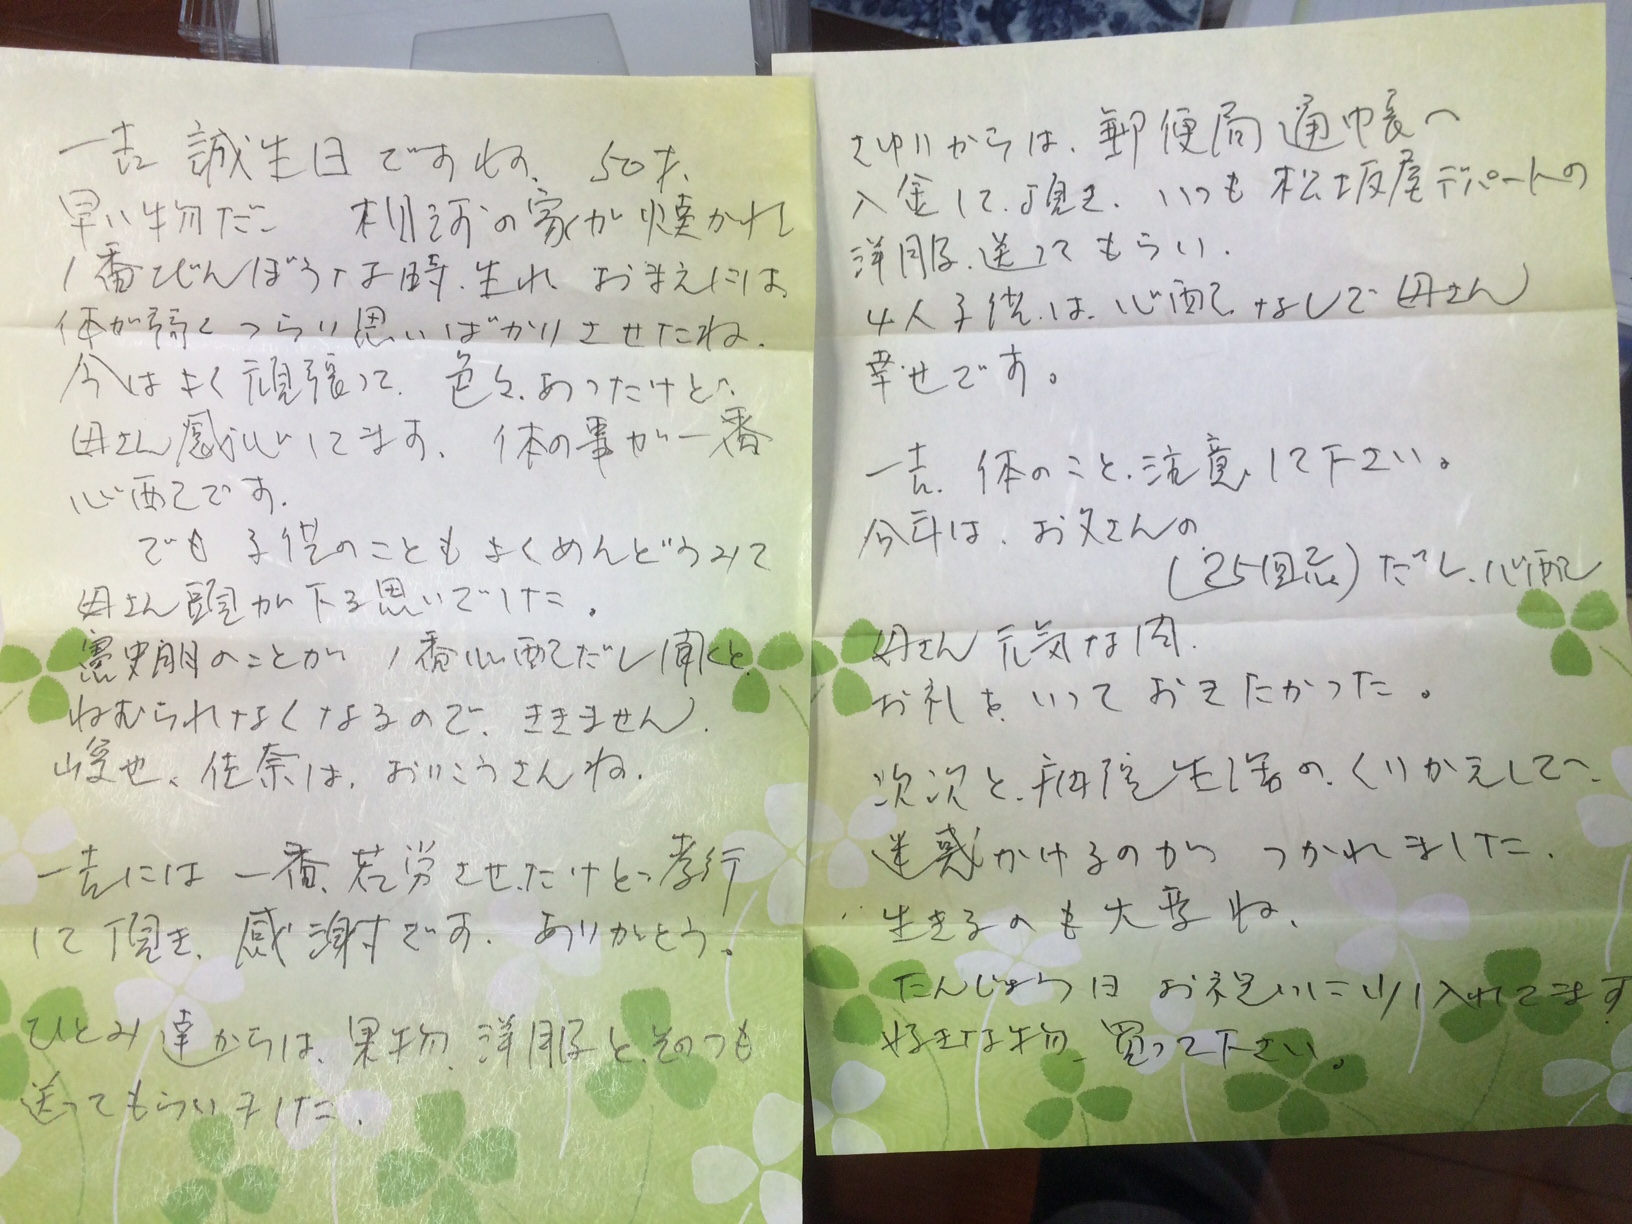 一吉 誠生日ですね、50才、
早い物だ 家が焼かれて
1番びんぼうな時、生れ おまえには、
体が弱くつらい思いばかりさせたね、
今はよく頑張って、色々あったけど、
母さん感心してます、体の事が一番
心配です、
でも 子供のこともよくめんどうみて
母さん頭が下る思いでした。
憲史朗のことが 1番心配だし聞くと、
ねむられなくなるので、ききません、
峻也、佐奈は、おりこうさんね、
一吉には 一番、苦労させたけど 孝行
して頂き、感謝です、ありがとう。
ひとみ達からは、果物、洋服と、そのつも
送ってもらいました、
さゆりからは、郵便局通帳へ
入金して頂き、いつも松坂屋デパートの
洋服、送ってもらい、
4人子供は、心配なしで 母さん
幸せです。
一吉、体のこと、注意、して下さい。
今年は、お父さんの
(25回忌)だし、心配
母さん 元気な内、
お礼を、いって おきたかった。
次次と、病院生活の、くりかえしで、
迷惑かけるのが つかれました、
生きるのも大変ね、
たんじょう日 お祝いに少し入れてます
好きな物、買って下さい。